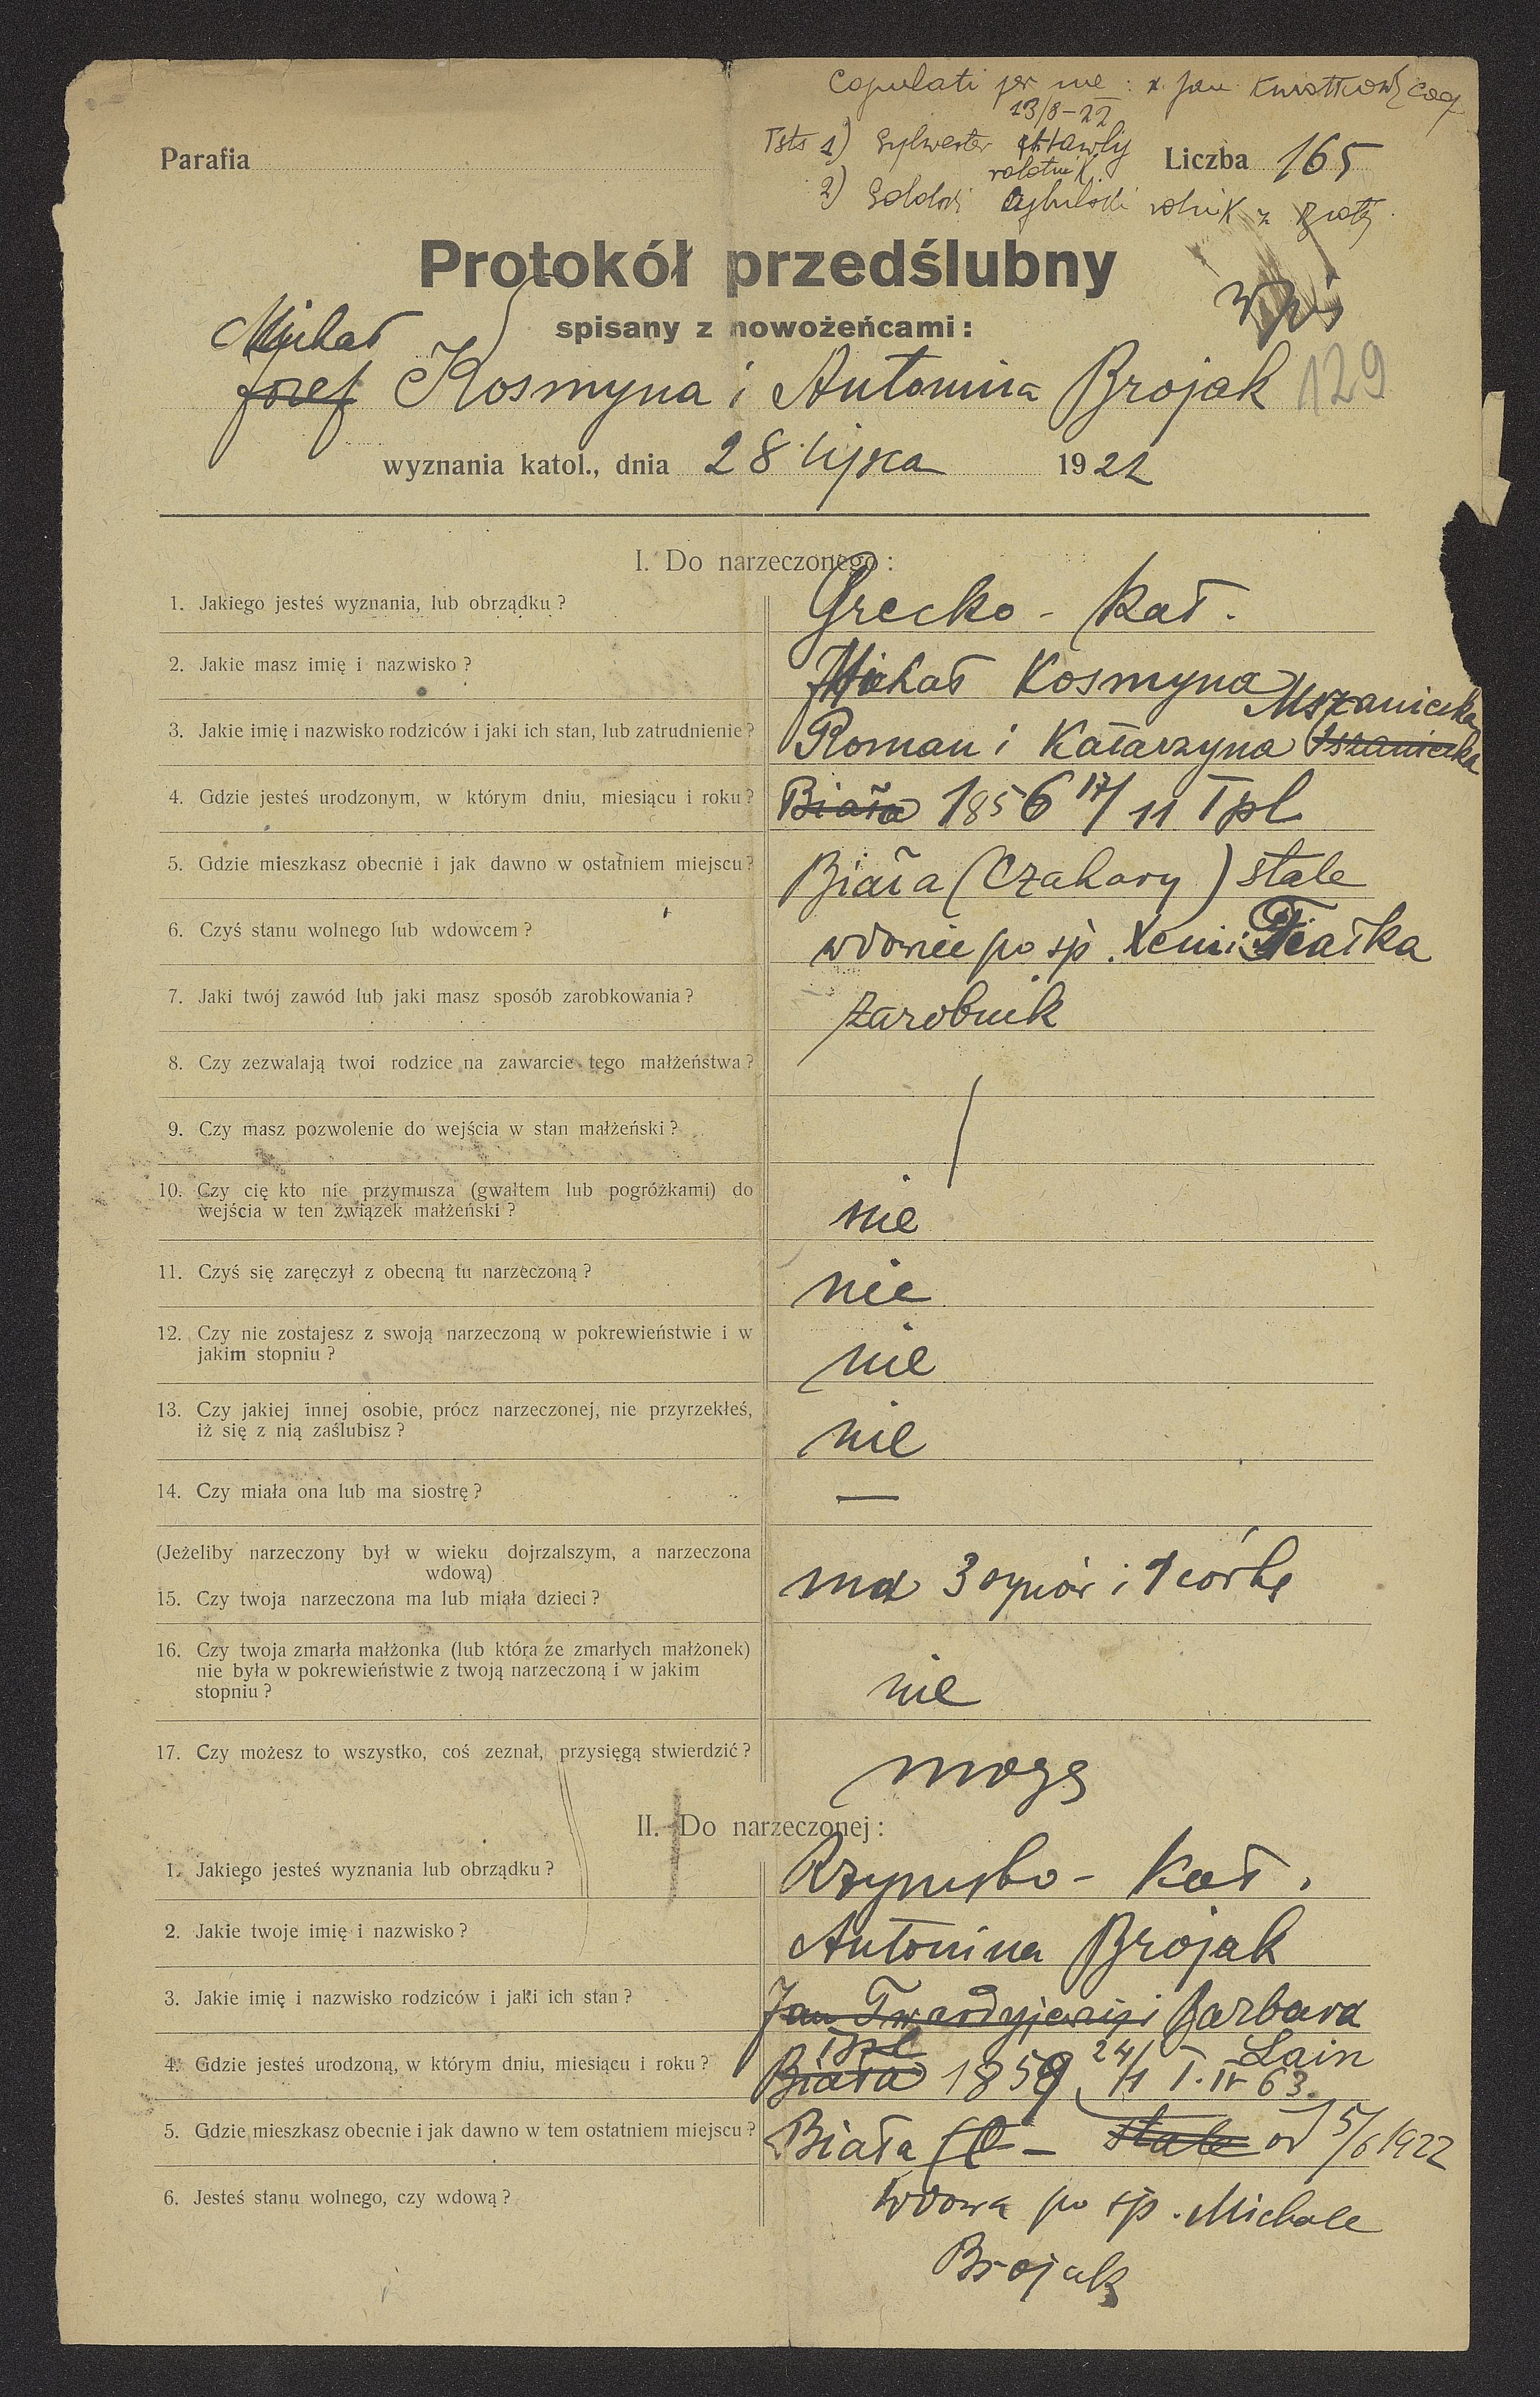 Copulati per me: x. Jan
13/8-22
Tsts 1) Sylwester
robotnik
2) rolnik z Białej
Parafia
Liczba 165
Protokół przedślubny
wpis
spisany z nowożeńcami:
Michał
Józef Kosmyna i Antonina Brojak 129
wyznania katol., dnia 28 lipca 1922
I. Do narzeczonego:
1. Jakiego jesteś wyznania, lub obrządku? Grecko - kat.
2. Jakie masz imię i nazwisko? Michał Kosmyna
Mszaniecka
3. Jakie imię i nazwisko rodziców i jaki ich stan, lub zatrudnienie? Roman i Katarzyna
4. Gdzie jesteś urodzonym, w którym dniu, miesiącu i roku? Biała 1856 17/11 Tpl
5. Gdzie mieszkasz obecnie i jak dawno w ostatniem miejscu? Biała (Czahary) stale
6. Czyś stanu wolnego lub wdowcem? wdowiec po śp. Xeni Fiałka
7. Jaki twój zawód lub jaki masz sposób zarobkowania? zarobnik
8. Czy zezwalają twoi rodzice na zawarcie tego małżeństwa?
9. Czy masz pozwolenie do wejścia w stan małżeński?
10. Czy cię kto nie przymusza (gwałtem lub pogróżkami) do
wejścia w ten związek małżeński? nie
11. Czyś się zaręczył z obecną tu narzeczoną? nie
12. Czy nie zostajesz z swoją narzeczoną w pokrewieństwie i w
jakim stopniu? nie
13. Czy jakiej innej osobie, prócz narzeczonej, nie przyrzekłeś,
iż się z nią zaślubisz? nie
14. Czy miała ona lub ma siostrę? —
(Jeżeliby narzeczony był w wieku dojrzalszym, a narzeczona
wdową)
15. Czy twoja narzeczona ma lub miała dzieci? ma 3 synów i 1 córkę
16. Czy twoja zmarła małżonka (lub która ze zmarłych małżonek)
nie była w pokrewieństwie z twoją narzeczoną i w jakim
stopniu? nie
17. Czy możesz to wszystko, coś zeznał, przysięgą stwierdzić? mogę
II. Do narzeczonej:
1. Jakiego jesteś wyznania lub obrządku? Rzymsko - kat.
2. Jakie twoje imię i nazwisko? Antonina Brojak
3. Jakie imię i nazwisko rodziców i jaki ich stan? Jan i Barbara
Tpl Lain
4. Gdzie jesteś urodzoną, w którym dniu, miesiącu i roku? Biała 1859 24/1 T. IV 63
5. Gdzie mieszkasz obecnie i jak dawno w tem ostatniem miejscu? Biała - stale od 5/6 1922
6. Jesteś stanu wolnego, czy wdową? wdowa po śp. Michale
Brojak